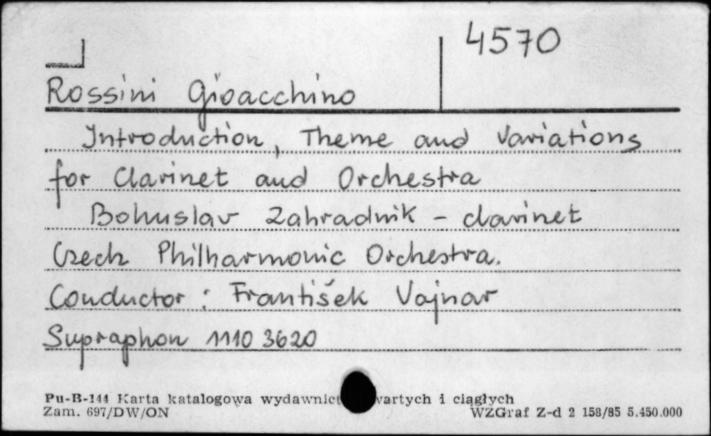 4570
Rossini Gioacchino
Introduction, Theme and Variations
for Clarinet and Orchestra
Bohuslav Zahradnik - clarinet
Czech Philharmonic Orchestra.
Conductor : František Vajnar
Supraphon 1110 3620
Pu-B-144 Karta katalogowa wydawnict wartych i ciągłych
Zam. 697/DW/ON WZGraf Z-d 2 158/85 5.450.000